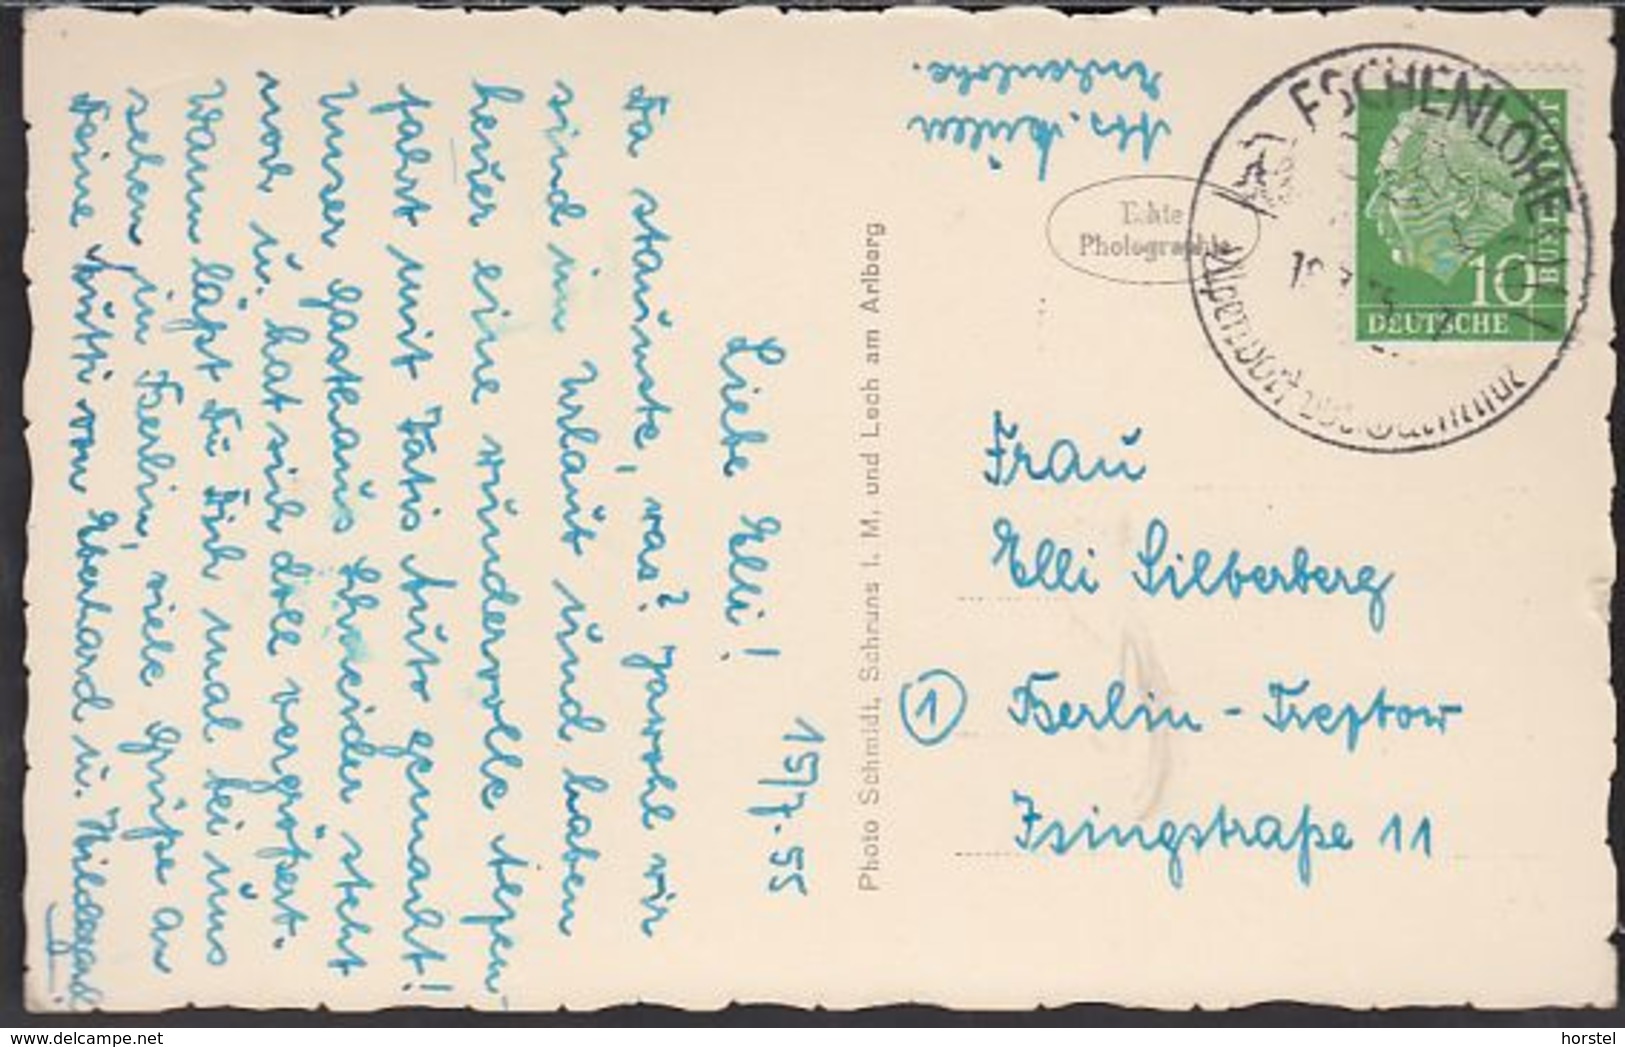 15/7.55
Liebe Elli!
Da staunste, was? Jawohl wir
sind im Urlaub und haben
heuer eine wundervolle Alpen-
fahrt mit Vatis Auto gemacht!
Unser Gasthaus Schneider steht
noch u. hat sich doll vergrößert.
Wann läßt Du Dich mal bei uns
sehen in Berlin, viele Grüße an
Deine Mutti von Eberhard u. Hildegard
Photo Schmidt, Schruns i. M. und Lech am Arlberg
Echte
Photographie
Eschenlohe.
ESCHENLOHE
10
DEUTSCHE
BUNDESPOST
Frau
Elli Silberberg
① Berlin - Treptow
Isingstraße 11
horstel © delcampe.net